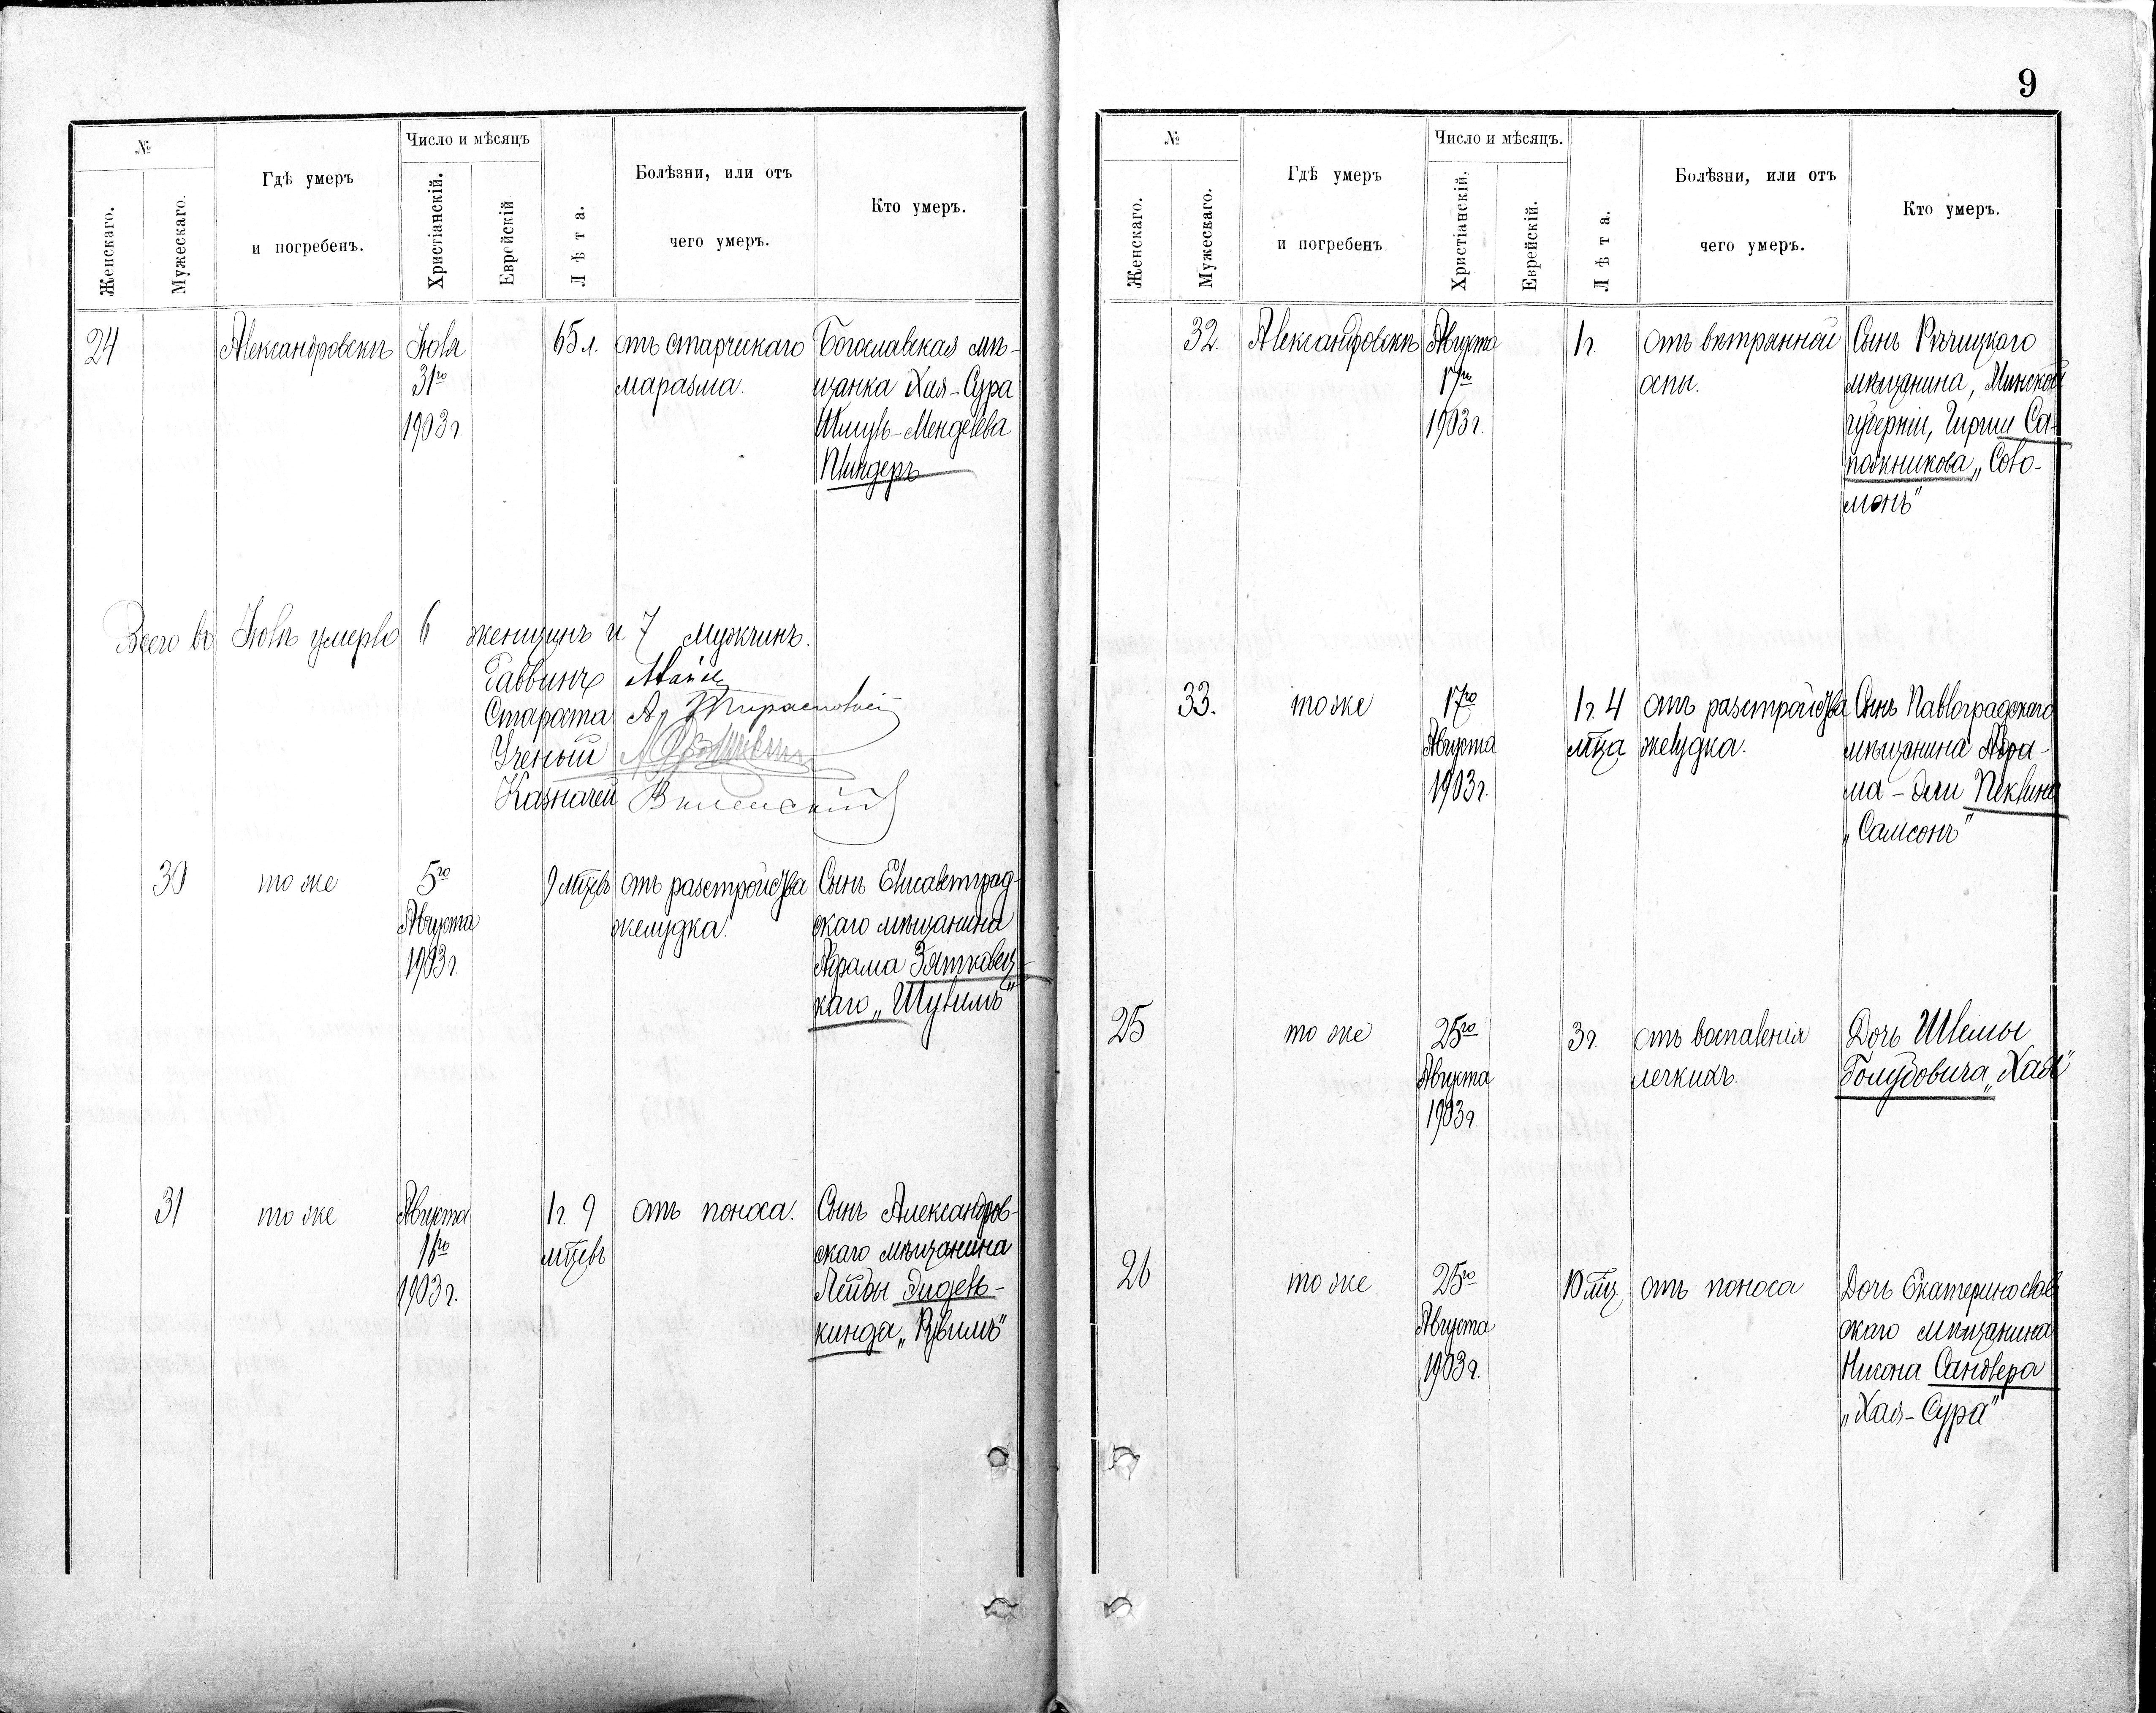 №
Женскаго.
Мужескаго.
Гдѣ умеръ
и погребенъ.
Число и мѣсяцъ
Христіанскій.
Еврейскій
Лѣта.
Болѣзни, или отъ
чего умеръ.
Кто умеръ.
24
Александровскъ
Іюля
31го
1903 г
65 л.
отъ старческаго
маразма.
Богославская мѣ-
щанка Хая-Сура
Шмуль-Менделева
Пиндеръ
Всего въ Іюлѣ умерло 6 женщинъ и 7 мужчинъ.
Раввинъ
Староста
Ученый
Казначей Виленскій
30
тоже
5го
Августа
1903 г.
9 мцевъ
отъ разстройства
желудка.
Сынъ Елисаветград-
скаго мѣщанина
Абрама Златкавец-
каго „Шулимъ“
31
тоже
Августа
16го
1903 г.
1 г. 9
мцевъ
отъ поноса.
Сынъ Александров-
скаго мѣщанина
Лейбы Эйдель-
кинда „Рувимъ“
9
№
Женскаго.
Мужескаго.
Гдѣ умеръ
и погребенъ
Число и мѣсяцъ.
Христіанскій.
Еврейскій.
Лѣта.
Болѣзни, или отъ
чего умеръ.
Кто умеръ.
32.
Александровскъ
Августа
17го
1903 г.
1 г.
Отъ вѣтрянной
оспы.
Сынъ Рѣчицкаго
мѣщанина, Минской
губерніи, Гирши Са-
пожникова „Соло-
монъ“
33.
тоже
17го
Августа
1903 г.
1 г. 4
мца
отъ разстройства
желудка.
Сынъ Павлоградскаго
мѣщанина Абра-
ма-Эли Пеклина
„Самсонъ“
25
тоже
25го
Августа
1903 г.
3 г.
отъ воспаленія
легкихъ.
Дочь Шлемы
Голубовича „Хая“
26
тоже
25го
Августа
1903 г.
10 мц.
отъ поноса
Дочь Екатеринослав
скаго мѣщанина
Нисона Сандлера
„Хая-Сура“